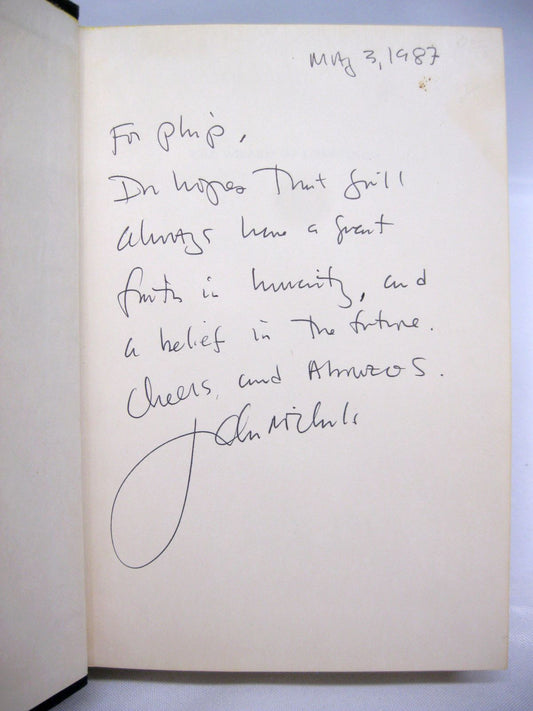 May 3, 1987
For Philip,
In hopes that you'll
always have a great
faith in humanity, and
a belief in the future.
Cheers, and Abrazos.
John Nichols